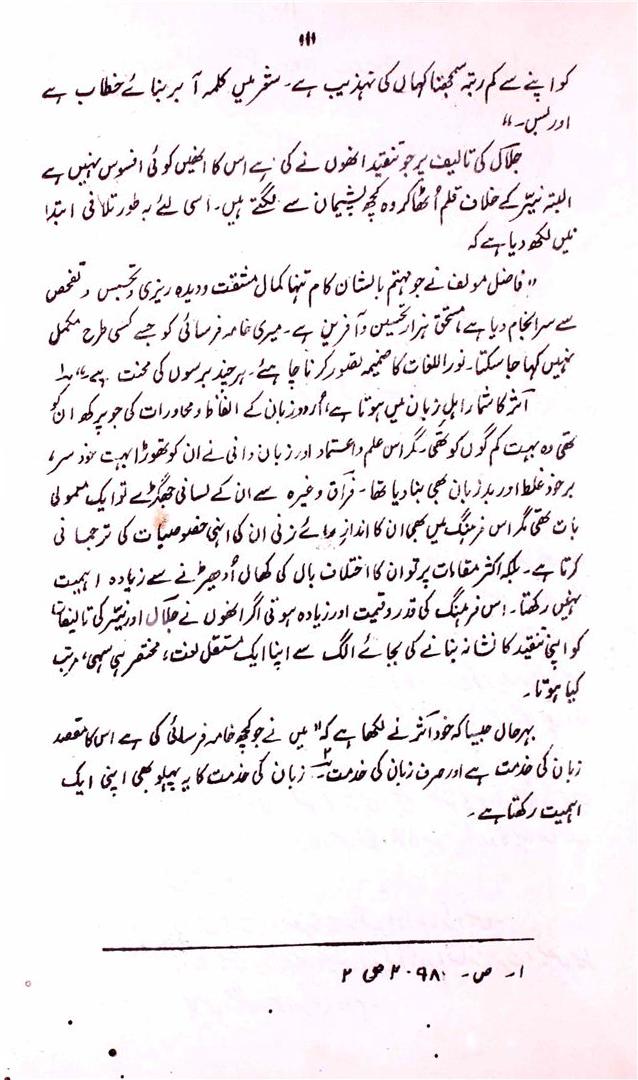 ۱۱۱
کو اپنے سے کم رتبہ سمجھنا کہاں کی تہذیب ہے۔ شعر میں کلمہ آ بر بنائے خطاب ہے
اور بس۔"
جلال کی تالیف پر جو تنقید انھوں نے کی ہے اس کا انھیں کوئی افسوس نہیں ہے
البتہ نیّر کے خلاف قلم اُٹھا کر وہ کچھ پشیمان سے لگتے ہیں۔ اسی لئے بہ طور تلافی ابتدا
میں لکھ دیا ہے کہ
"فاضل مولف نے جو مہتم بالشان کام تنہا کمال مشقت و دیدہ ریزی و تجسس و تفحص
سے سر انجام دیا ہے مستحق ہزار تحسین و آفرین ہے۔ میری خامہ فرسائی کو جسے کسی طرح مکمل
نہیں کہا جا سکتا۔ نور اللغات کا ضمیمہ تصور کرنا چاہئے۔ ہر چند برسوں کی محنت ہے" ۱
اثر کا شمار اہلِ زبان میں ہوتا ہے، اُردو زبان کے الفاظ و محاورات کی جو پرکھ ان کو
تھی وہ بہت کم لوگوں کو تھی۔ مگر اس علم و اعتماد اور زبان دانی نے ان کو تھوڑا بہت خود سر،
بر خود غلط اور بد زبان بھی بنا دیا تھا۔ فراق وغیرہ سے ان کے لسانی جھگڑے تو ایک معمولی
بات تھی مگر اس فرہنگ میں بھی ان کا اندازِ رائے زنی ان کی انہی خصوصیات کی ترجمانی
کرتا ہے۔ بلکہ اکثر مقامات پر تو ان کا اختلاف بال کی کھال اُدھیڑنے سے زیادہ اہمیت
نہیں رکھتا۔ اس فرہنگ کی قدر و قیمت اور زیادہ ہوتی اگر انھوں نے جلال اور نیّر کی تالیفات
کو اپنی تنقید کا نشانہ بنانے کی بجائے الگ سے اپنا ایک مستقل لغت، مختصر ہی سہی، مرتب
کیا ہوتا۔
بہرحال جیسا کہ خود اثر نے لکھا ہے کہ "میں نے جو کچھ خامہ فرسائی کی ہے اس کا مقصد
زبان کی خدمت ہے اور صرف زبان کی خدمت" ۲ زبان کی خدمت کا یہ پہلو بھی اپنی ایک
اہمیت رکھتا ہے۔
۱۔ ص۔ ۹۸۔ ۲۔ ص ۲